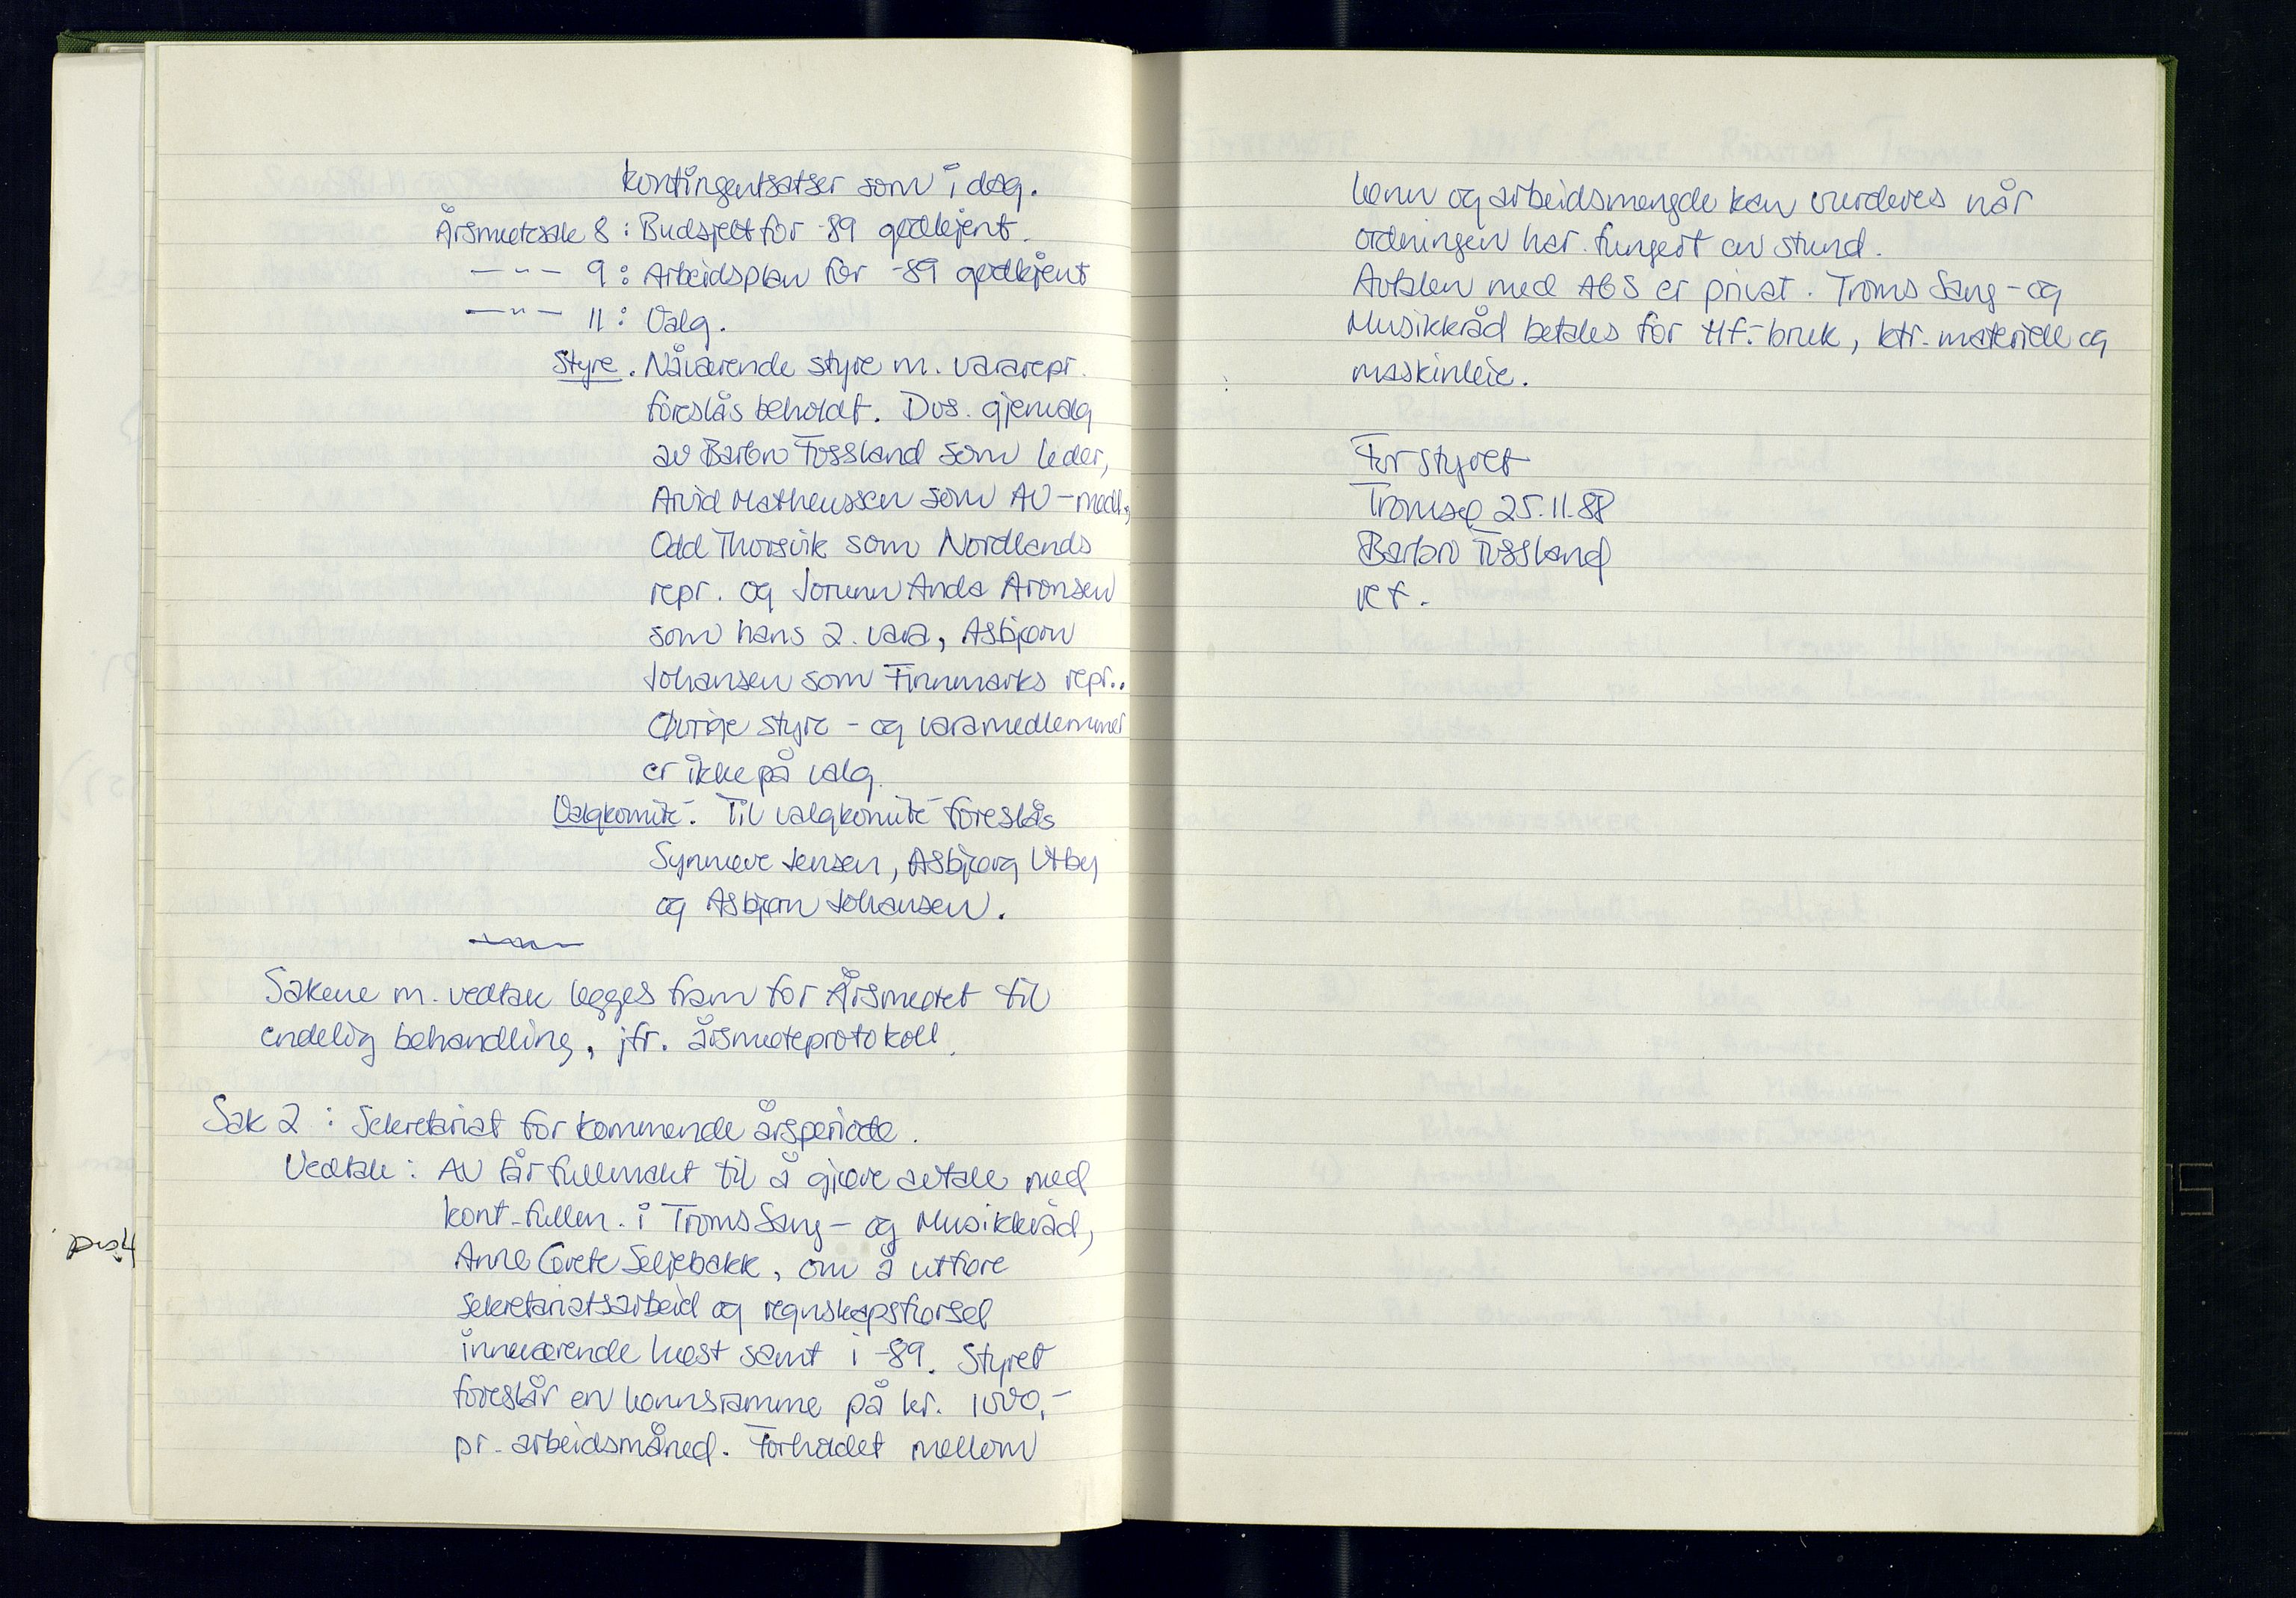 kontingentsatser som i dag.
Årsmøtesak 8 : Budsjett for -89 godkjent.
— " — 9 : Arbeidsplan for -89 godkjent
— " — 11 : Valg.
Styre. Nåværende styre m. vararepr.
foreslås beholdt. Dvs. gjenvalg
av Barbro Fossland som leder,
Arvid Matheussen som AU-medl.,
Odd Thorsvik som Nordlands
repr. og Jorunn Anda Aronsen
som hans 2. vara, Asbjørn
Johansen som Finnmarks repr..
Øvrige styre - og varamedlemmer
er ikke på valg.
Valgkomité. Til valgkomité foreslås
Synnøve Jensen, Asbjørg Utby
og Asbjørn Johansen.
Sakene m. vedtak legges fram for Årsmøtet til
endelig behandling, jfr. årsmøteprotokoll.
Sak 2 : Sekretariat for kommende årsperiode.
Vedtak : AU får fullmakt til å gjøre avtale med
kont.fullm. i Troms Sang- og Musikkråd,
Anne Grete Seljebakk, om å utføre
sekretariatsarbeid og regnskapsførsel
inneværende høst samt i -89. Styret
foreslår en lønnsramme på kr. 1000,-
pr. arbeidsmåned. Forholdet mellom
lønn og arbeidsmengde kan vurderes når
ordningen har fungert en stund.
Avtalen med AGS er privat. Troms Sang- og
Musikkråd betales for tlf.-bruk, ktr.materiell og
maskinleie.
For styret
Tromsø 25.11.88
Barbro Fossland
ref.